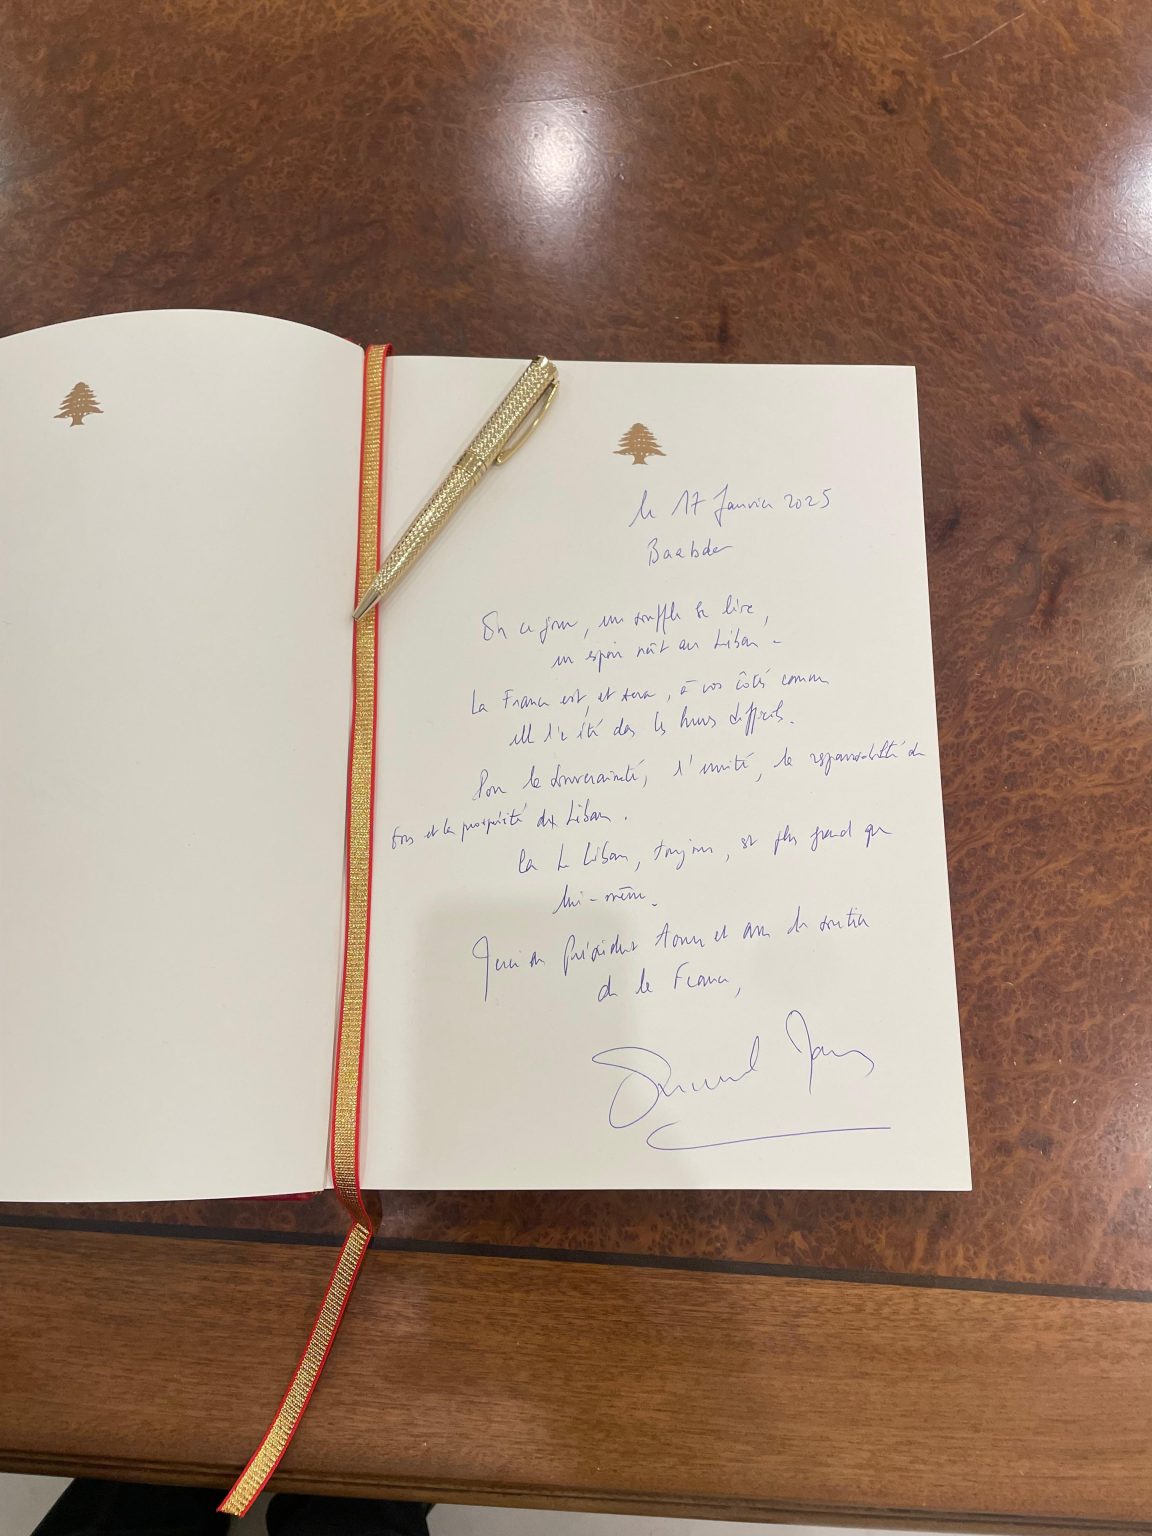 le 17 Janvier 2025
Baabda
En ce jour, un souffle se lève,
un espoir naît au Liban -
La France est, et sera, à vos côtés comme
elle l'a été dans les heures difficiles.
Pour la souveraineté, l'unité, la responsabilité de
tous et la prospérité du Liban.
Le Liban, toujours, est plus grand que
lui-même.
Merci au Président Aoun et avec le soutien
de la France,
Emmanuel Macron